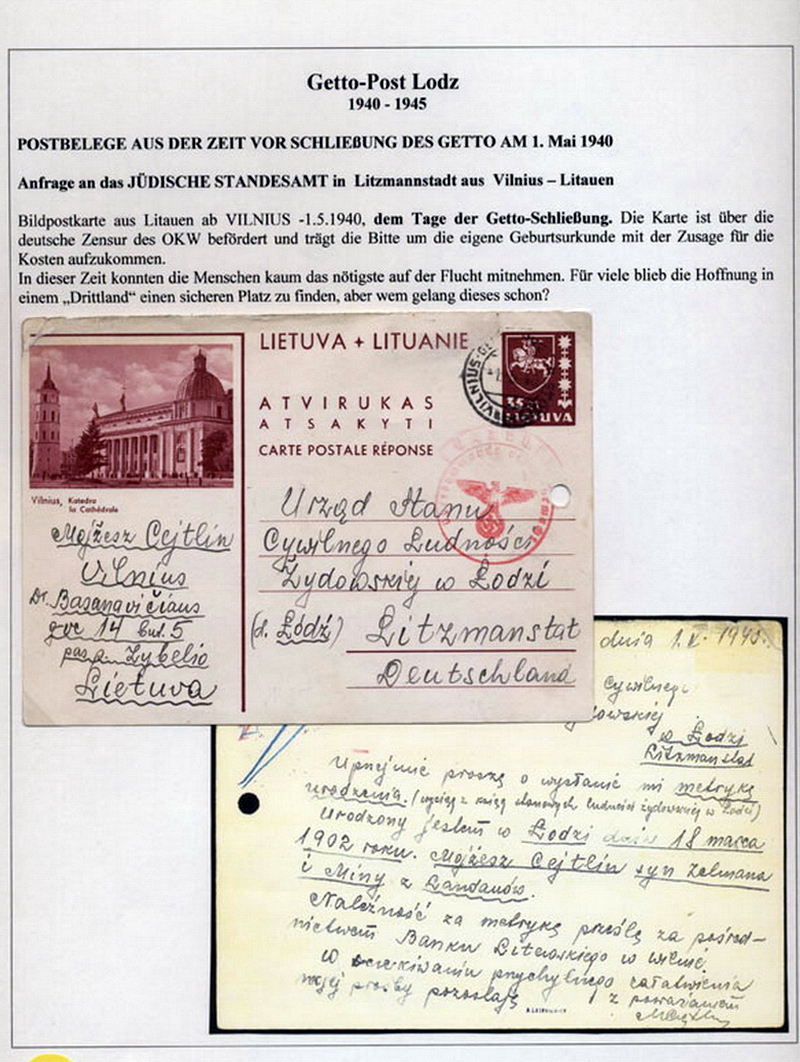 Getto-Post Lodz
1940 - 1945
POSTBELEGE AUS DER ZEIT VOR SCHLIEßUNG DES GETTO AM 1. Mai 1940
Anfrage an das JÜDISCHE STANDESAMT in Litzmannstadt aus Vilnius – Litauen
Bildpostkarte aus Litauen ab VILNIUS -1.5.1940, dem Tage der Getto-Schließung. Die Karte ist über die
deutsche Zensur des OKW befördert und trägt die Bitte um die eigene Geburtsurkunde mit der Zusage für die
Kosten aufzukommen.
In dieser Zeit konnten die Menschen kaum das nötigste auf der Flucht mitnehmen. Für viele blieb die Hoffnung in
einem „Drittland“ einen sicheren Platz zu finden, aber wem gelang dieses schon?
LIETUVA + LITUANIE
ATVIRUKAS
ATSAKYTI
CARTE POSTALE RÉPONSE
VILNIUS
35
LIETUVA
Vilnius, Katedra
la Cathédrale
Mojżesz Cejtlin
Vilnius
Dr. Basanavičiaus
gve 14 but. 5
pas p. Zybelio
Lietuva
Urząd Stanu
Cywilnego Ludności
Żydowskiej w Łodzi
(d. Łódź) Litzmanstat
Deutschland
dnia 1.V. 1940.
Cywilnego
w Łodzi
Litzmanstad
Uprzejmie proszę o wysłanie mi metrykę
urodzenia. (wyciąg z ksiąg ludności żydowskiej w Łodzi)
Urodzony jestem w Łodzi dnia 18 marca
1902 roku. Mojżesz Cejtlin syn Zelmana
i Miny z Landauów.
Należność za metrykę prześlę za pośred-
nictwem Banku Litewskiego w Wilnie.
W oczekiwaniu przychylnego załatwienia
mojej prośby pozostaję z poważaniem